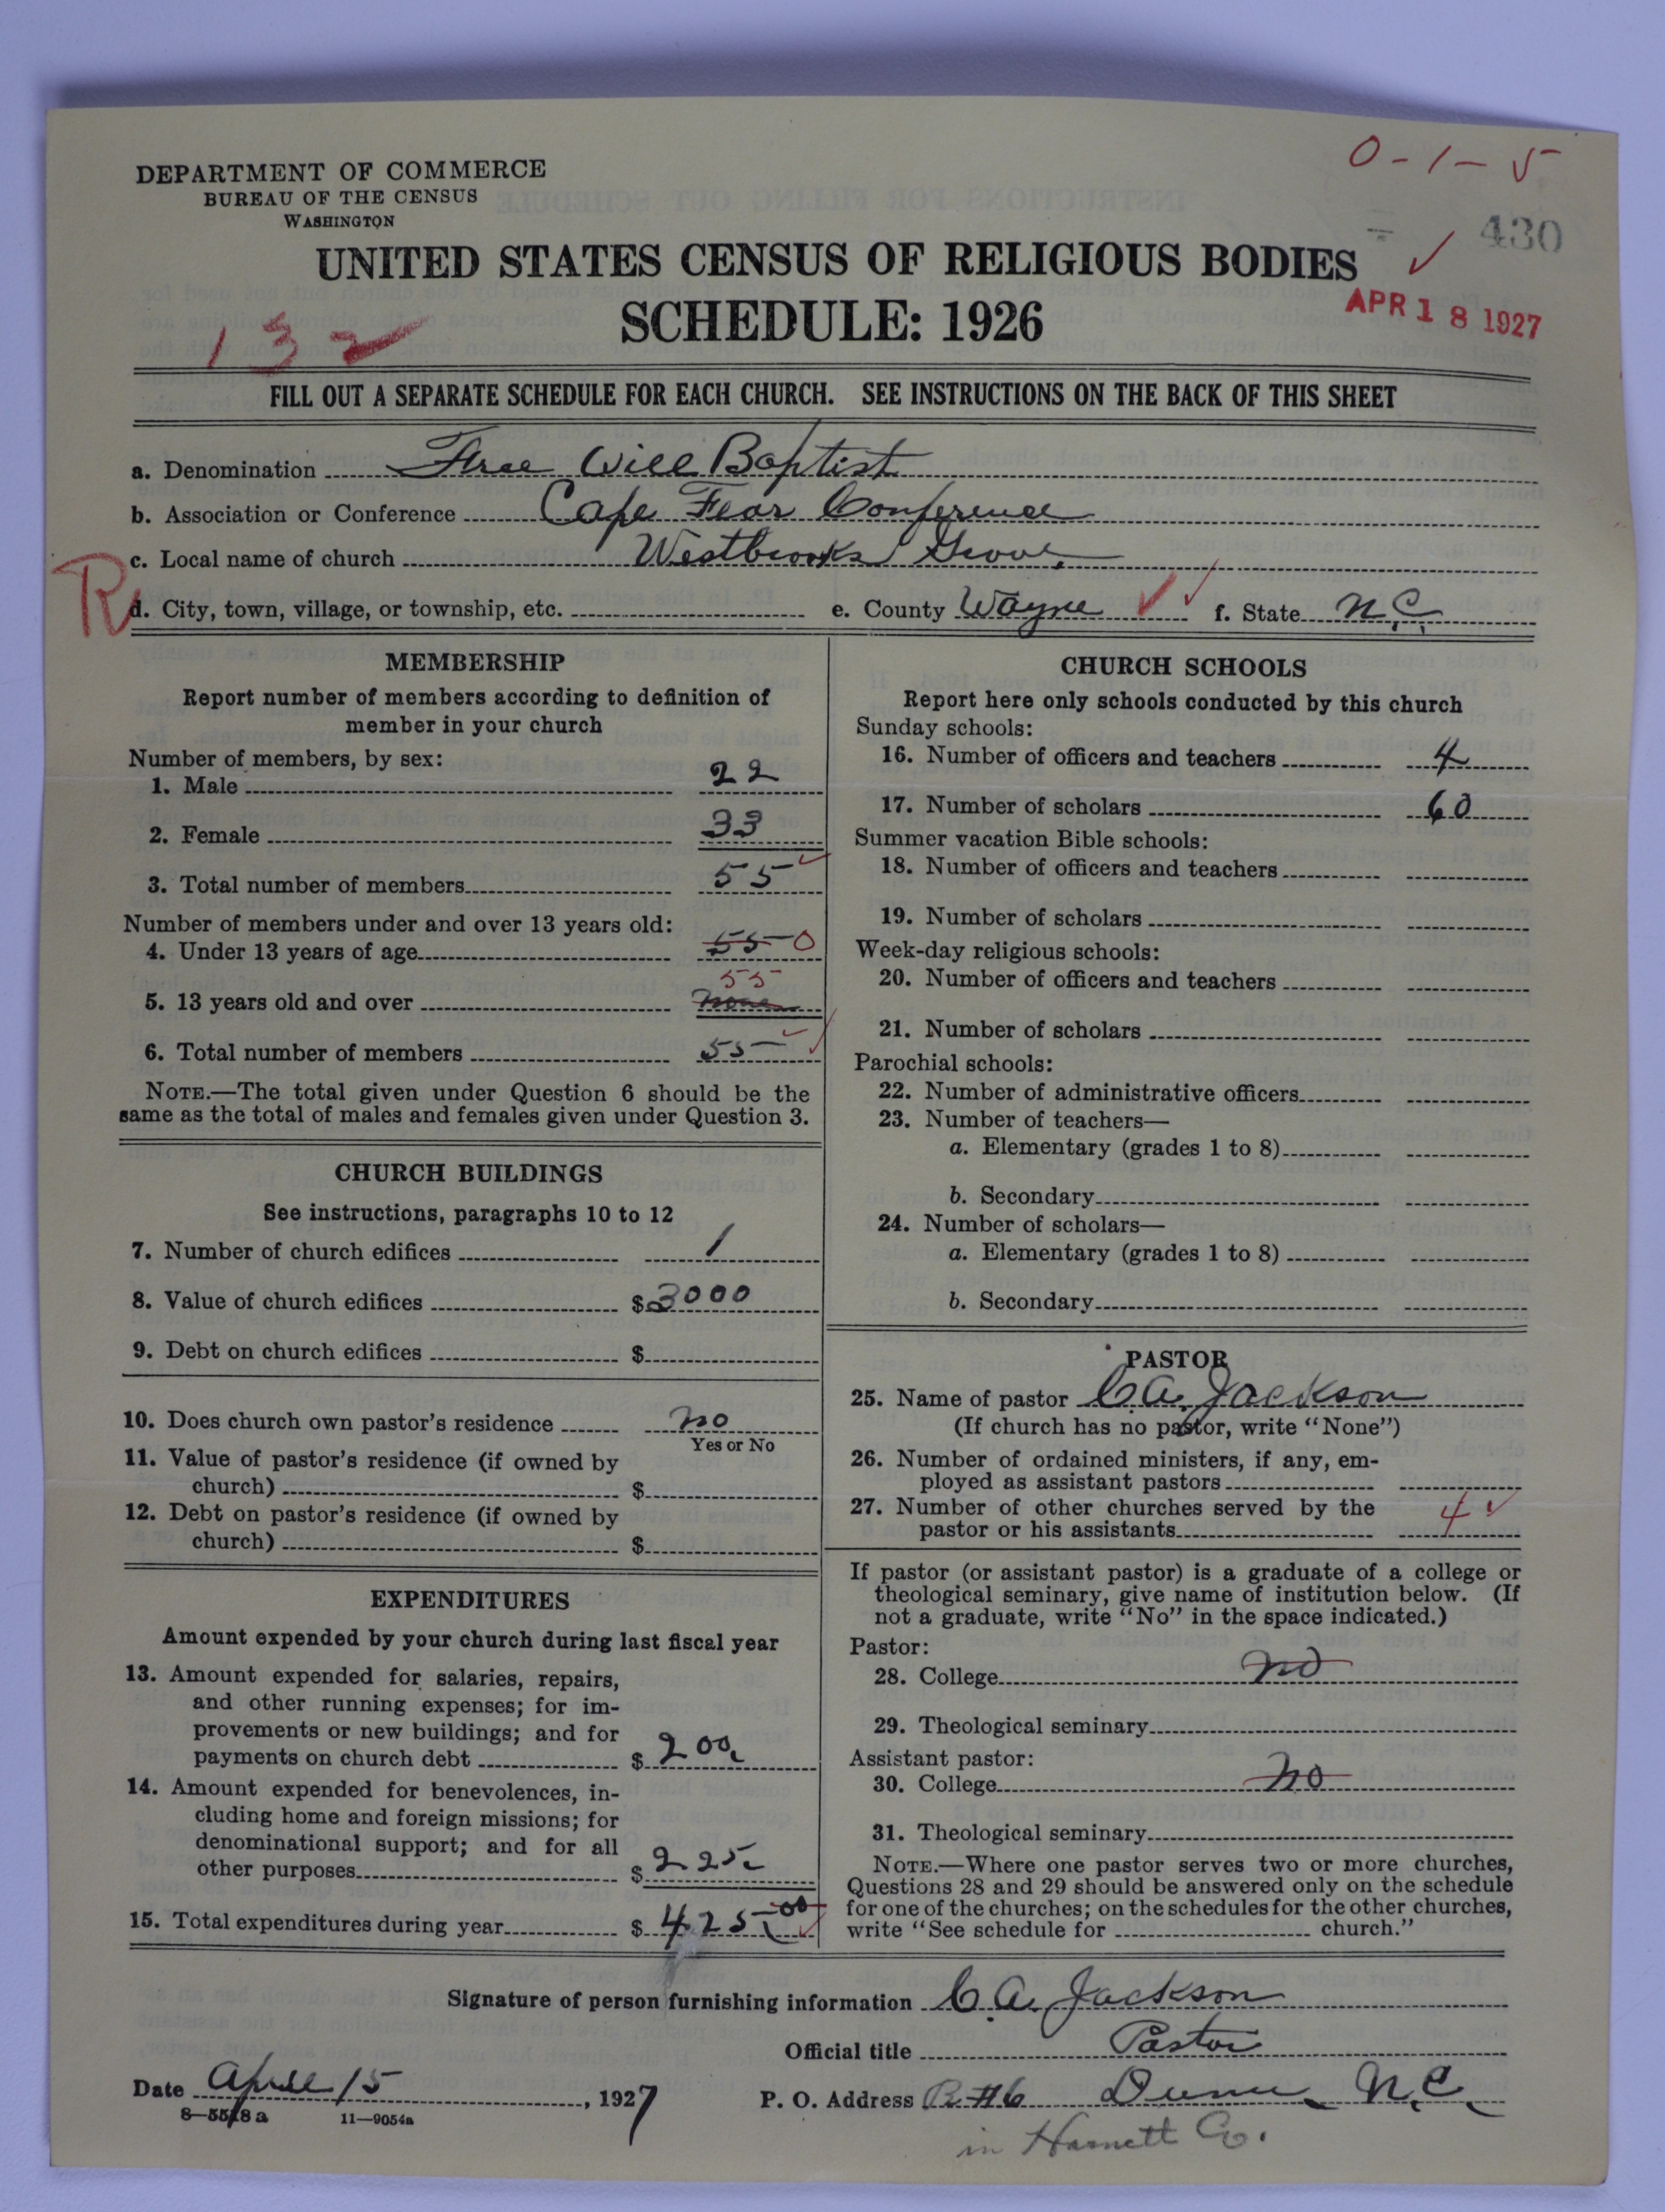 0-1-5
DEPARTMENT OF COMMERCE
BUREAU OF THE CENSUS
WASHINGTON
430
UNITED STATES CENSUS OF RELIGIOUS BODIES
SCHEDULE: 1926
APR 18 1927
132
FILL OUT A SEPARATE SCHEDULE FOR EACH CHURCH. SEE INSTRUCTIONS ON THE BACK OF THIS SHEET
a. Denomination Free Will Baptist
b. Association or Conference Cape Fear Conference
c. Local name of church Westbrooks Grove
R
d. City, town, village, or township, etc. e. County Wayne f. State N.C.
MEMBERSHIP
Report number of members according to definition of
member in your church
Number of members, by sex:
1. Male 22
2. Female 33
3. Total number of members 55
Number of members under and over 13 years old:
4. Under 13 years of age 55 0
55
5. 13 years old and over none
6. Total number of members 55
NOTE.—The total given under Question 6 should be the
same as the total of males and females given under Question 3.
CHURCH BUILDINGS
See instructions, paragraphs 10 to 12
7. Number of church edifices 1
8. Value of church edifices $3000
9. Debt on church edifices $
10. Does church own pastor's residence no
Yes or No
11. Value of pastor's residence (if owned by
church) $
12. Debt on pastor's residence (if owned by
church) $
EXPENDITURES
Amount expended by your church during last fiscal year
13. Amount expended for salaries, repairs,
and other running expenses; for im-
provements or new buildings; and for
payments on church debt $ 200
14. Amount expended for benevolences, in-
cluding home and foreign missions; for
denominational support; and for all
other purposes $ 225
15. Total expenditures during year $ 425.00
CHURCH SCHOOLS
Report here only schools conducted by this church
Sunday schools:
16. Number of officers and teachers 4
17. Number of scholars 60
Summer vacation Bible schools:
18. Number of officers and teachers
19. Number of scholars
Week-day religious schools:
20. Number of officers and teachers
21. Number of scholars
Parochial schools:
22. Number of administrative officers
23. Number of teachers—
a. Elementary (grades 1 to 8)
b. Secondary
24. Number of scholars—
a. Elementary (grades 1 to 8)
b. Secondary
PASTOR
25. Name of pastor C.A. Jackson
(If church has no pastor, write "None")
26. Number of ordained ministers, if any, em-
ployed as assistant pastors
27. Number of other churches served by the
pastor or his assistants 4
If pastor (or assistant pastor) is a graduate of a college or
theological seminary, give name of institution below. (If
not a graduate, write "No" in the space indicated.)
Pastor:
28. College no
29. Theological seminary
Assistant pastor:
30. College no
31. Theological seminary
NOTE.—Where one pastor serves two or more churches,
Questions 28 and 29 should be answered only on the schedule
for one of the churches; on the schedules for the other churches,
write "See schedule for church."
Signature of person furnishing information C.A. Jackson
Official title Pastor
Date April 15, 1927 P. O. Address R #6 Dunn, N.C.
8—5518a 11—9054a
in Harnett Co.